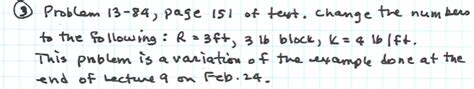 ③ Problem 13-84, page 151 of text. Change the numbers
to the following: R = 3ft, 3 lb block, K = 4 lb/ft.
This problem is a variation of the example done at the
end of Lecture 9 on Feb. 24.